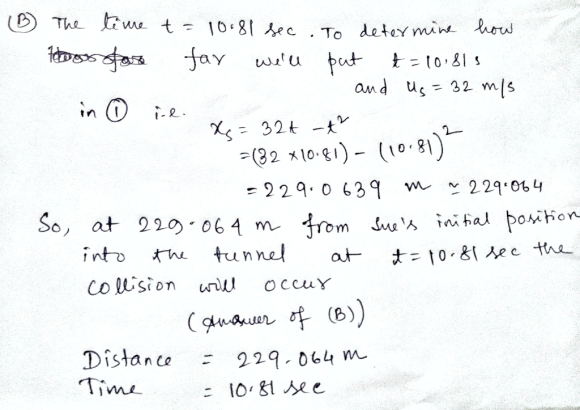 (B) The time t = 10.81 sec. To determine how
far we'll put t = 10.81 s
and u_s = 32 m/s
in ① i.e.
x_s = 32t - t²
= (32 × 10.81) - (10.81)²
= 229.0639 m ≃ 229.064
So, at 229.064 m from Sue's initial position
into the tunnel at t = 10.81 sec the
collision will occur
(Answer of (B))
Distance = 229.064 m
Time = 10.81 sec